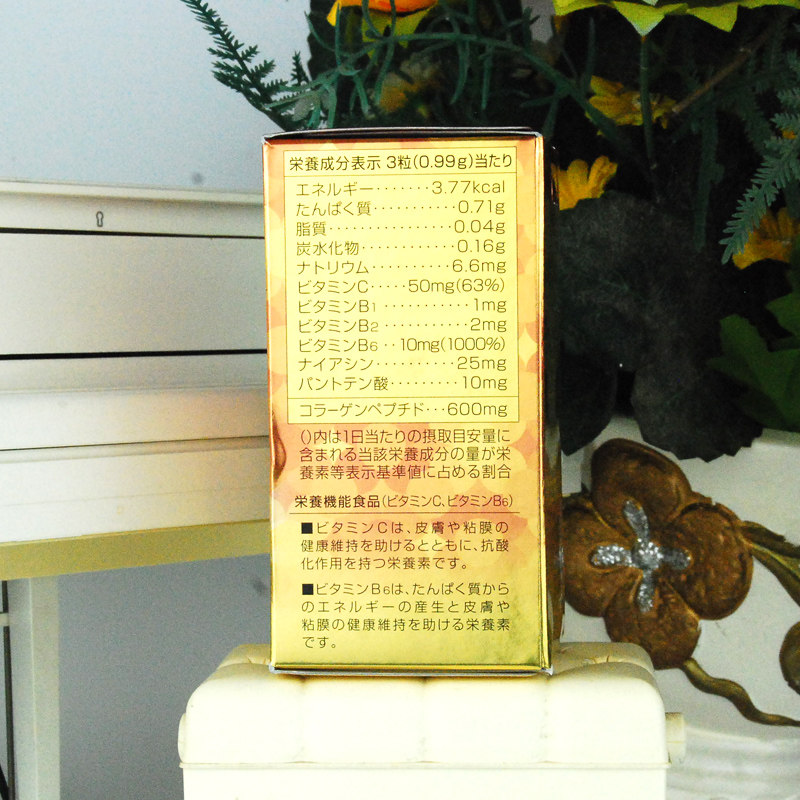 栄養成分表示 3粒(0.99g)当たり
エネルギー·······3.77kcal
たんぱく質···········0.71g
脂質················0.04g
炭水化物············0.16g
ナトリウム··········6.6mg
ビタミンC·····50mg(63%)
ビタミンB1 ···········1mg
ビタミンB2 ···········2mg
ビタミンB6 ··10mg(1000%)
ナイアシン··········25mg
パントテン酸·········10mg
コラーゲンペプチド···600mg
()内は1日当たりの摂取目安量に
含まれる当該栄養成分の量が栄
養素等表示基準値に占める割合
栄養機能食品(ビタミンC、ビタミンB6)
■ビタミンCは、皮膚や粘膜の
健康維持を助けるとともに、抗酸
化作用を持つ栄養素です。
■ビタミンB6は、たんぱく質から
のエネルギーの産生と皮膚や
粘膜の健康維持を助ける栄養素
です。